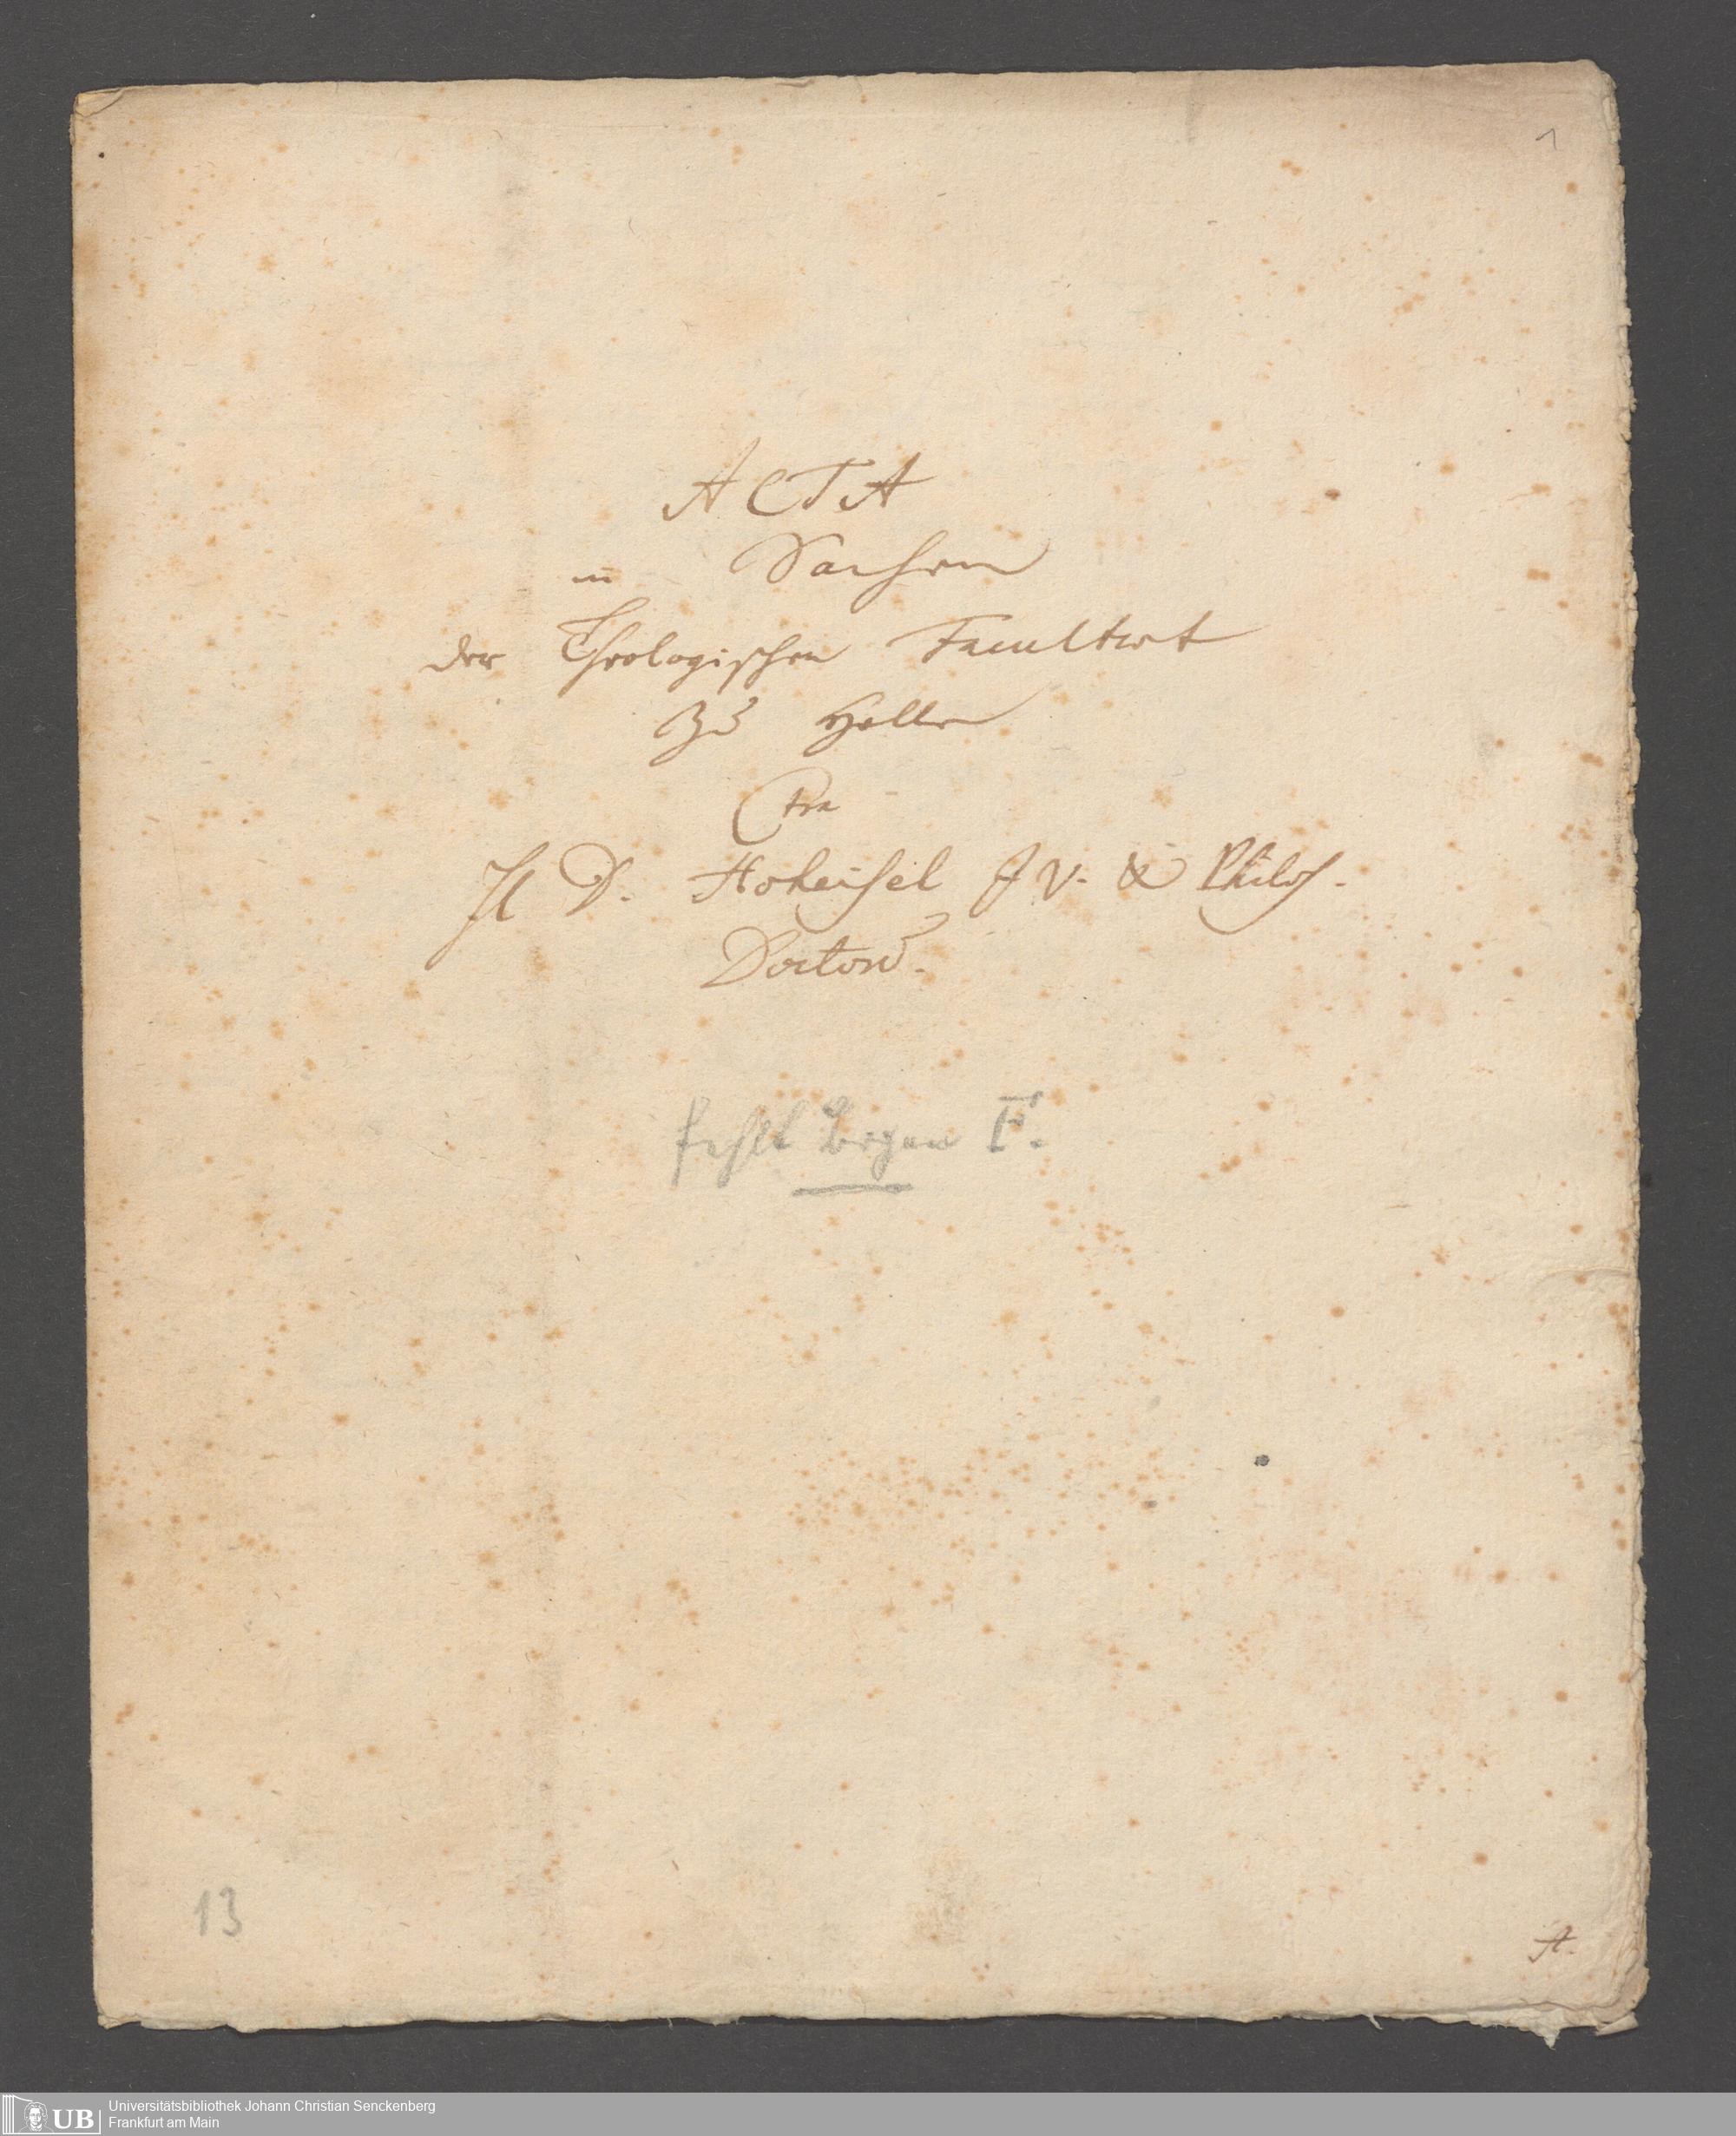 1
ACTA
in Sachen
der Theologischen Facultæt
zu Halle
Ctra
H D. Hoheisel J V. & Philos.
Doctorē.
fehlt Bogen F.
13
A.
UB
Universitätsbibliothek Johann Christian Senckenberg
Frankfurt am Main